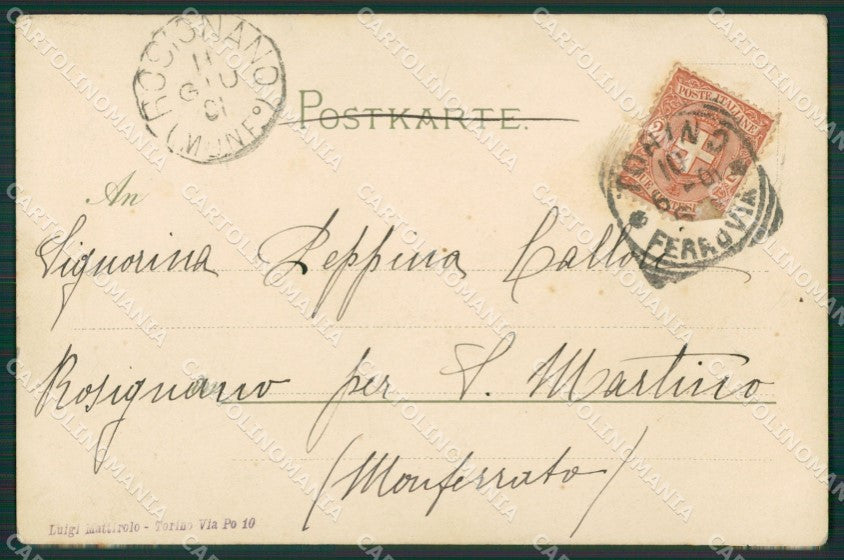 ROSIGNANO
11
GIU
01
(MONF°)
POSTKARTE.
POSTE ITALIANE
TORINO
10
FERROVIA
An
Signorina Peppina
Rosignano per S. Martino
(Monferrato)
Luigi Mattirolo - Torino Via Po 10
CARTOLINOMANIA